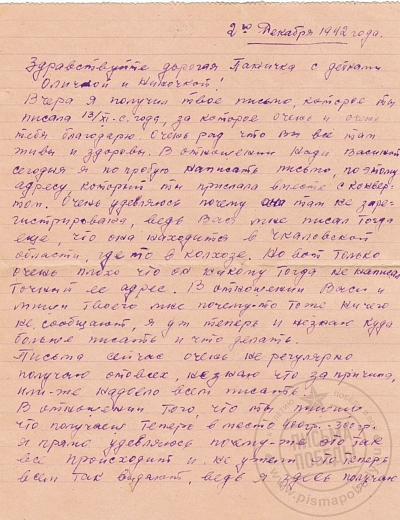 2го Декабря 1942 года.
Здравствуйте дорогая с детками
и Ниночкой!
Вчера я получил твое письмо, которое ты
писала 13/XI-с. года, за которое очень и очень
тебя благодарю. Очень рад что вы все там
живы и здоровы. В отношении Нади Васиной
сегодня я попробую написать письмо, по этому
адресу, который ты прислала вместе с конвер-
том. Очень удивляюсь почему она там не заре-
гистрирована, ведь Вася мне писал тогда
еще, что она находится в Чкаловской
области, где то в колхозе. Но вот только
очень плохо что он никому тогда не написал
точный ее адрес. В отношении Васи и
твоего мне почему-то тоже ничего
не сообщают, я уж теперь и незнаю куда
больше писать и что делать.
Письма сейчас очень не регулярно
получаю от всех, незнаю что за причина,
или-же надоело всем писать.
В отношении того, что ты пишешь
что получаеш теперь в место
Я прямо удивляюсь почему-же это так
все происходит и не ужели то теперь
всем так выдают, ведь я здесь получаю
ПИСЬМА
ПОБЕДЫ
www.pismapobedy